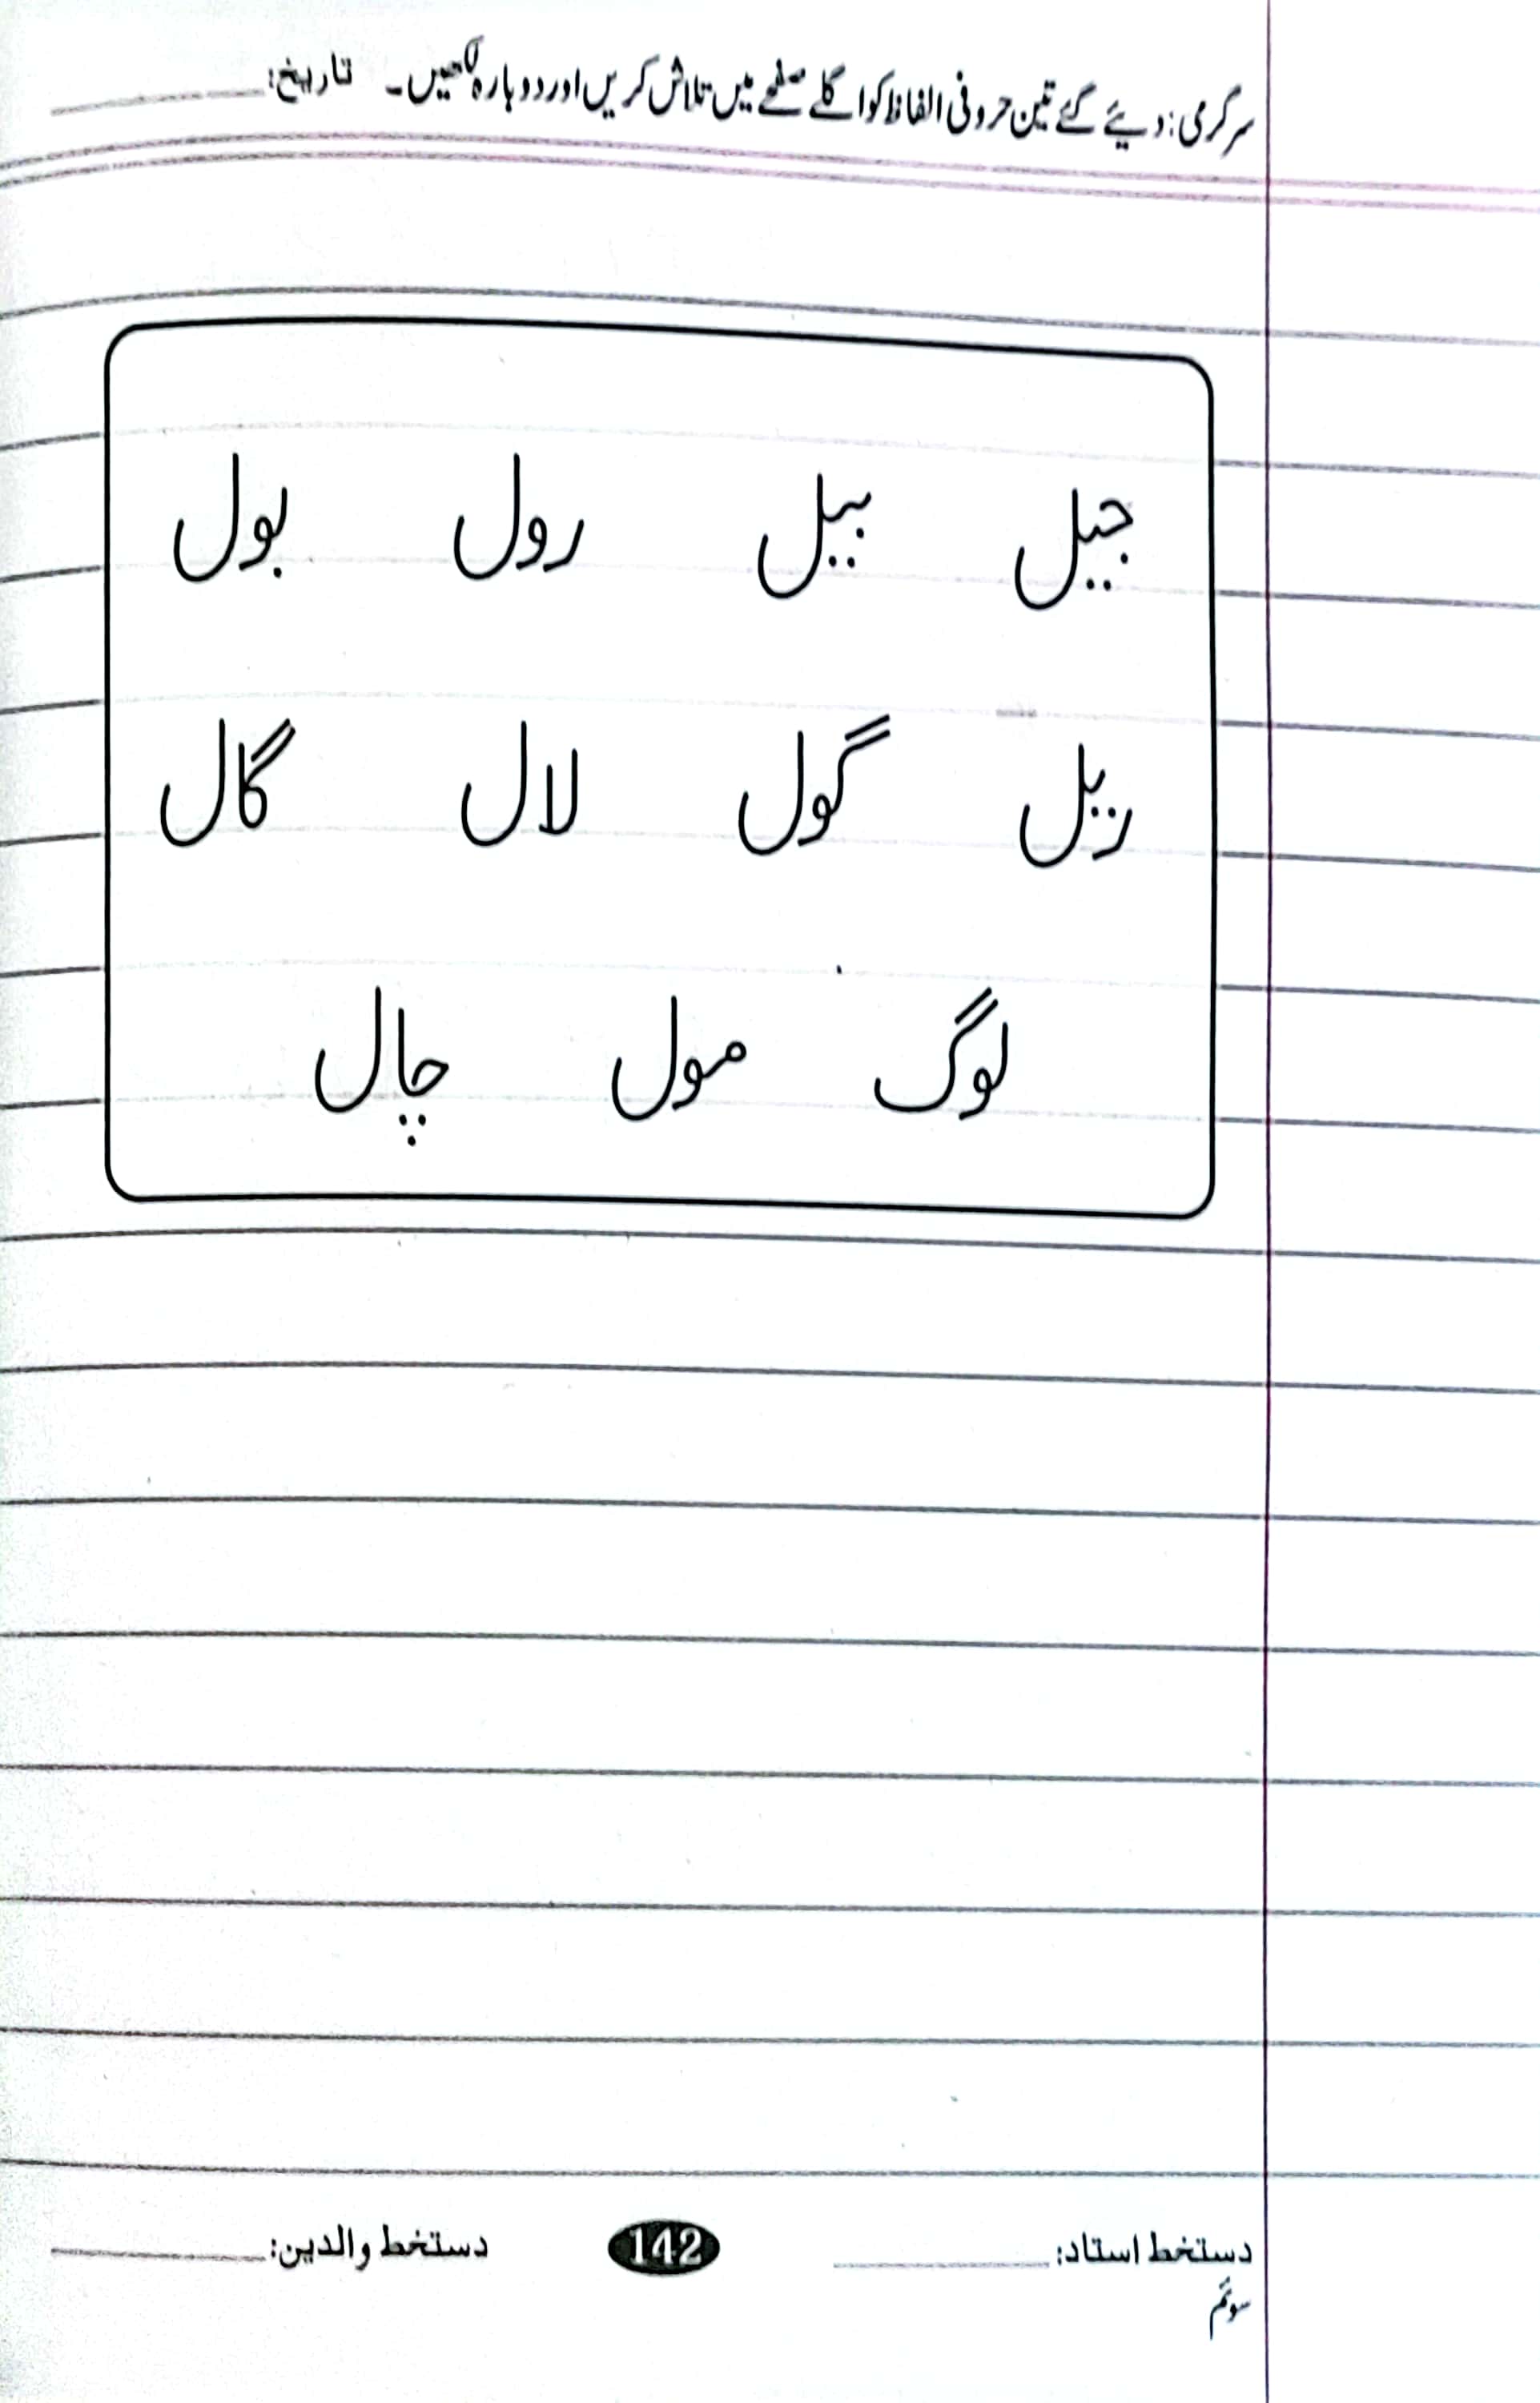 سرگرمی: دیئے گئے تین حروفی الفاظ کو اگلے صفحے میں تلاش کریں اور دوبارہ لکھیں۔ تاریخ:
جیل بیل رول بول
ریل گول لال گال
لوگ مول چال
دستخط استاد: 142 دستخط والدین:
سوئم